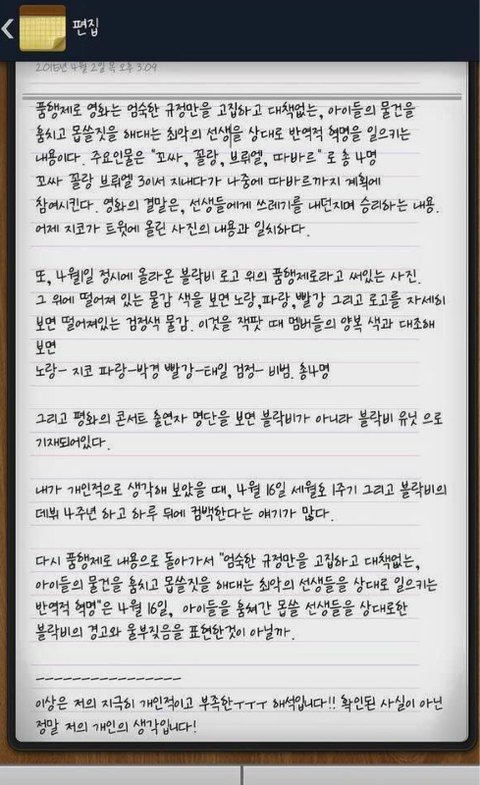 편집
2015년 4월 2일 목 오후 3:09
품행제로 영화는 엄숙한 규정만을 고집하고 대책없는, 아이들의 물건을
훔치고 몹쓸짓을 해대는 최악의 선생을 상대로 반역적 혁명을 일으키는
내용이다. 주요인물은 "꼬싸, 꼴랑, 브뤼엘, 따바르" 로 총 4명
꼬싸 꼴랑 브뤼엘 3이서 지내다가 나중에 따바르까지 계획에
참여시킨다. 영화의 결말은, 선생들에게 쓰레기를 내던지며 승리하는 내용.
어제 지코가 트윗에 올린 사진의 내용과 일치하다.
또, 4월1일 정시에 올라온 블락비 로고 위의 품행제로라고 써있는 사진.
그 위에 떨어져 있는 물감 색을 보면 노랑,파랑,빨강 그리고 로고를 자세히
보면 떨어져있는 검정색 물감. 이것을 잭팟 때 멤버들의 양복 색과 대조해
보면
노랑- 지코 파랑-박경 빨강-태일 검정- 비범. 총4명
그리고 평화의 콘서트 출연자 명단을 보면 블락비가 아니라 블락비 유닛 으로
기재되어있다.
내가 개인적으로 생각해 보았을 때, 4월 16일 세월호 1주기 그리고 블락비의
데뷔 4주년 하고 하루 뒤에 컴백한다는 얘기가 많다.
다시 품행제로 내용으로 돌아가서 "엄숙한 규정만을 고집하고 대책없는,
아이들의 물건을 훔치고 몹쓸짓을 해대는 최악의 선생들을 상대로 일으키는
반역적 혁명"은 4월 16일, 아이들을 훔쳐간 몹쓸 선생들을 상대로한
블락비의 경고와 울부짖음을 표현한것이 아닐까.
----------------
이상은 저의 지극히 개인적이고 부족한ㅜㅜㅜ 해석입니다!! 확인된 사실이 아닌
정말 저의 개인의 생각입니다!